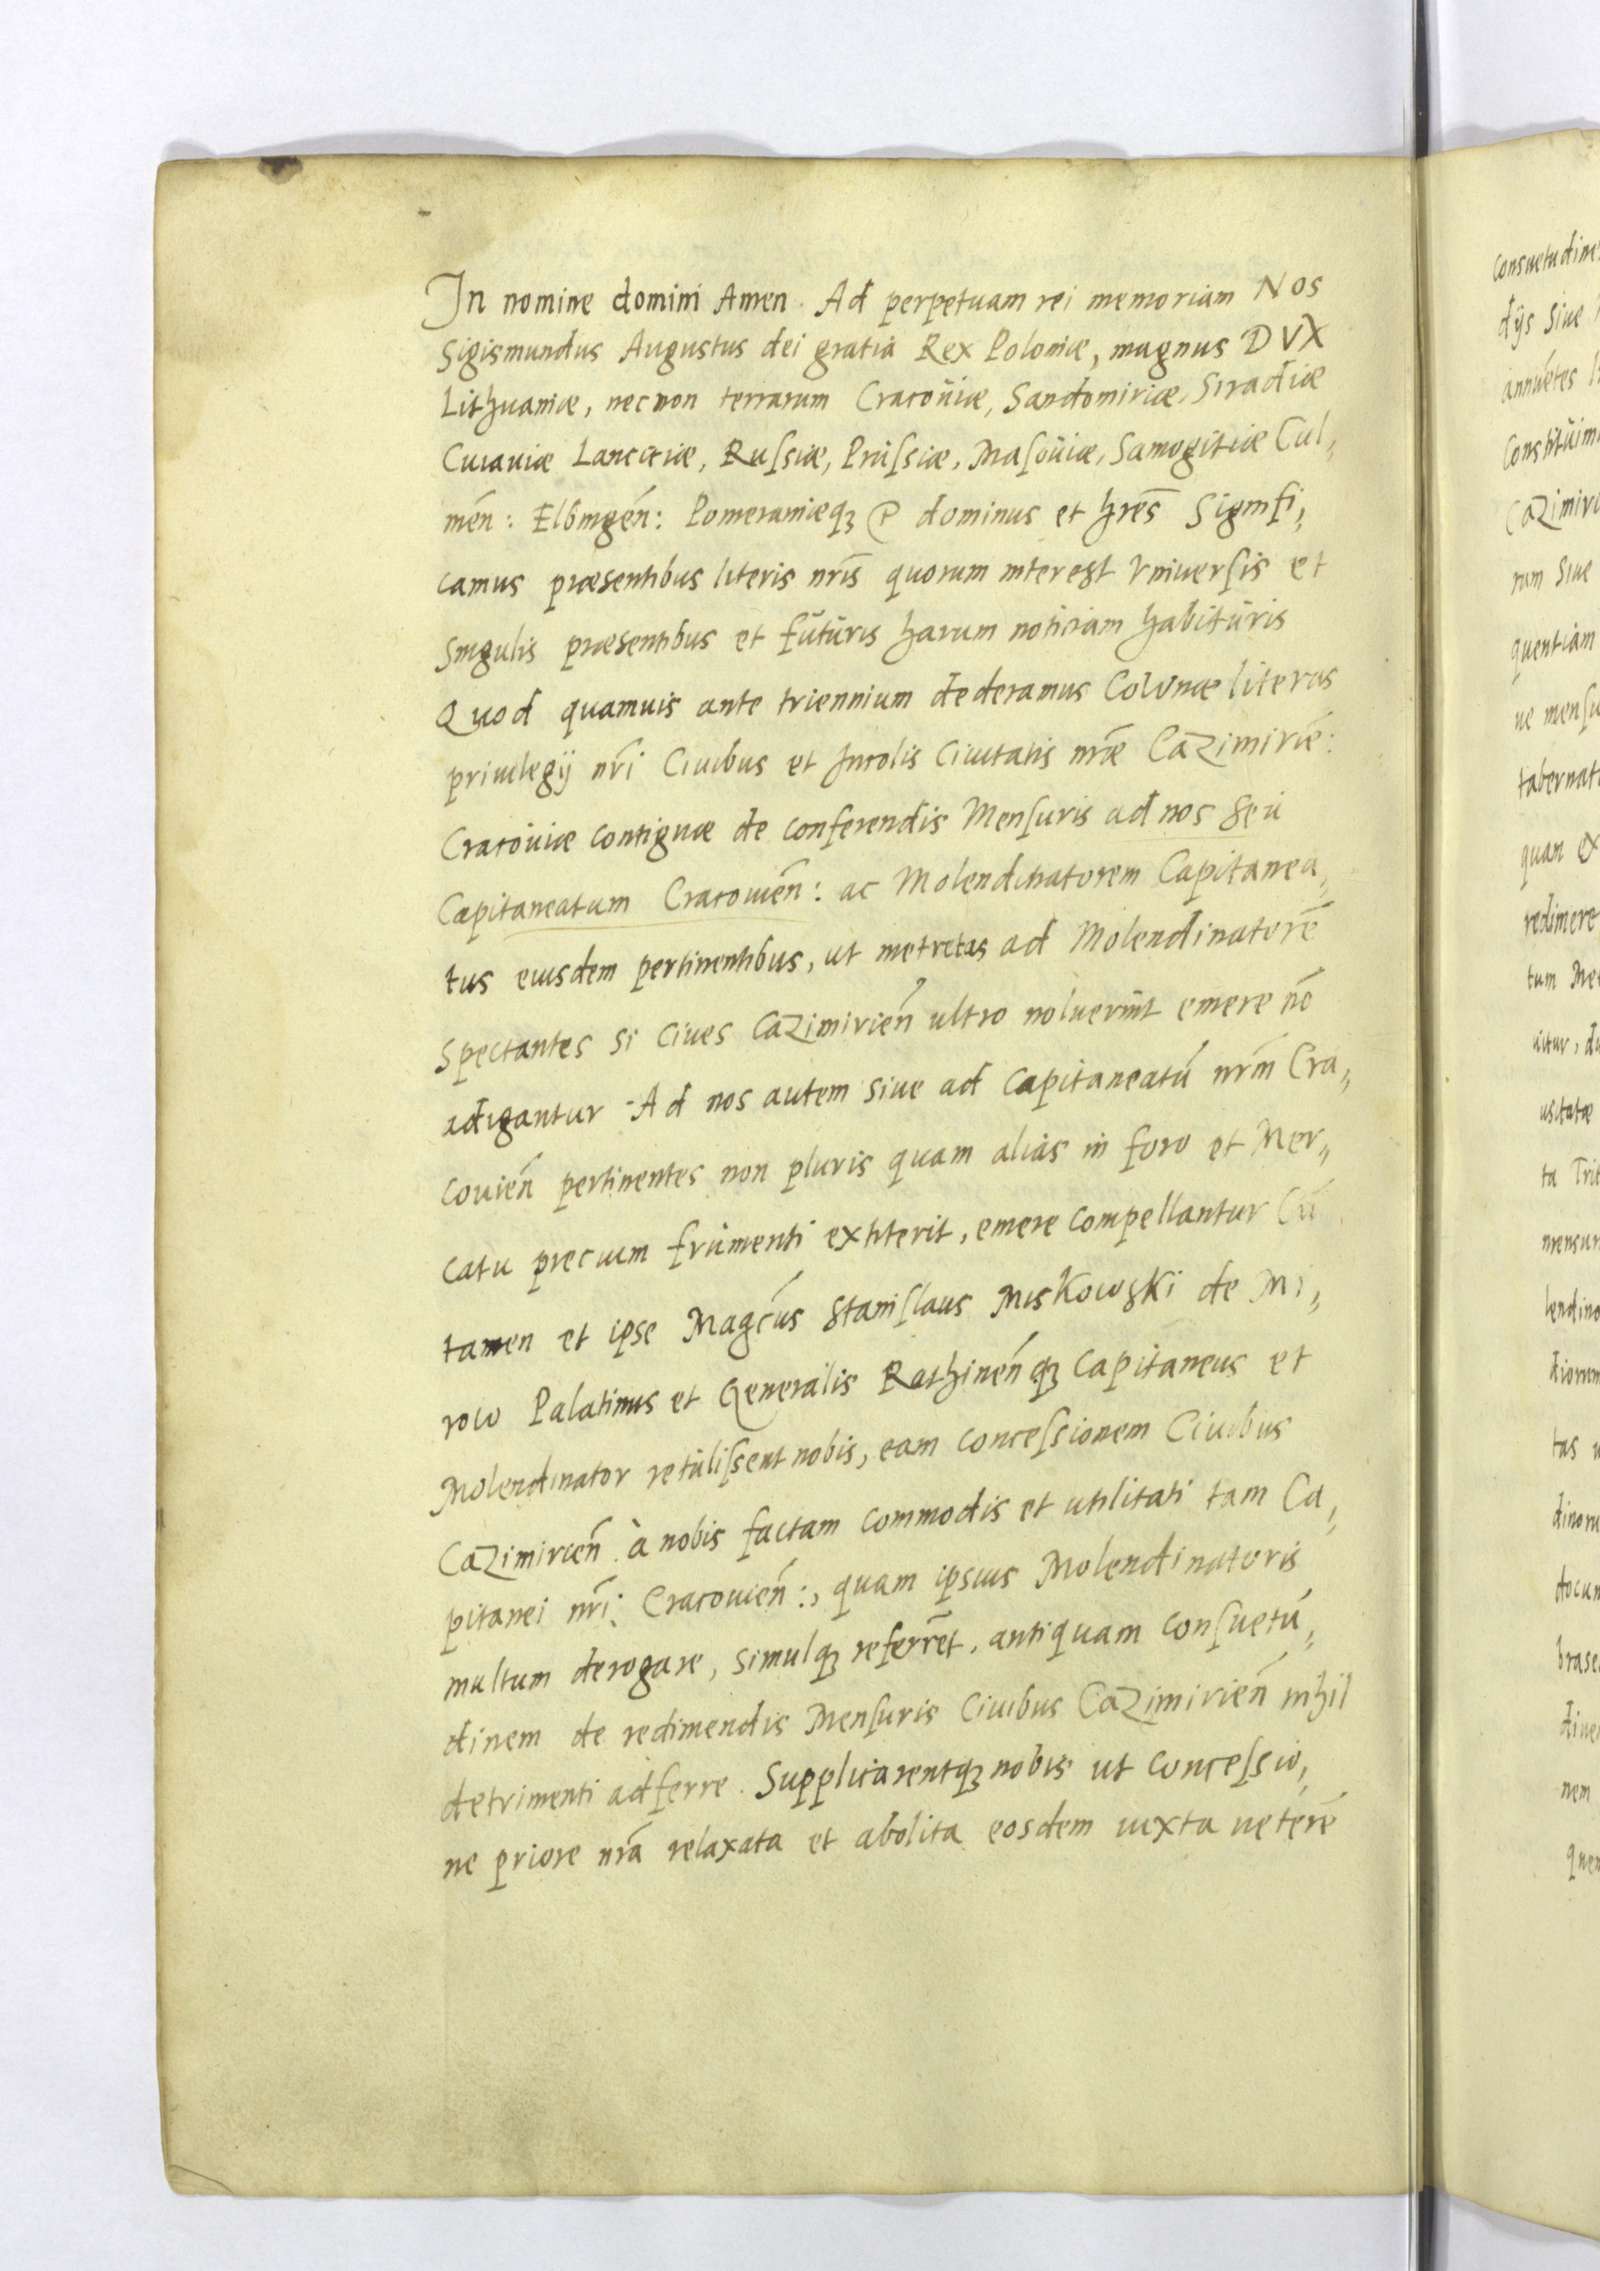 In nomine domini Amen. Ad perpetuam rei memoriam NOS
Sigismundus Augustus dei gratia Rex Poloniæ, magnus DVX
Lithuaniæ, necnon terrarum Cracoũiæ, Sandomiriæ, Siradiæ
Cuiauiæ Lanciciæ, Rußiæ, Prũßiæ, Maſoũiæ, Samogitiæ Cul„
meñ: Elbingeñ: Pomeraniæqȝ dominus et hr̃es Signifi„
camus præsentibus literis nr̃is quorum interest Vniuerſis et
Singulis præsentibus et fũtũris harum noticiam habitũris
Quod quamuis ante triennium dederamus Colonæ literas
priuilegij nr̃i Ciuibus et Incolis Ciuitatis nr̃æ Cazimirieñ:
Cracoũiæ contiguæ de conferendis Menſuris ad nos seũ
Capitaneatum Cracouieñ: ac Molendinatorem Capitanea„
tus eiusdem pertinentibus, ut metretas ad Molendinatorẽ
Spectantes si Ciues Cazimirieñ ultro noluerint emere nõ
adigantur Ad nos autem siue ad Capitaneatũ nr̃m Cra„
couieñ pertinentes non pluris quam aliàs in foro et Mer„
catu precium frũmenti extiterit, emere compellantur Cũ
tamen et ipse Magc̃us Staniſlaus Miskowski de Mi„
row Palatinus et Generalis Rathineñqȝ Capitaneus et
Molendinator retũlißent nobis, eam conceßionem Ciuibus
Cazimirieñ à nobis factam commodis et utilitati tam Ca„
pitanei nr̃i Cracouieñ:, quam ipsius Molendinatoris
multum derogare, simulqȝ referrẽt, antiquam conſuetũ„
dinem de redimendis Menſuris Ciuibus Cazimirieñ nihil
detrimenti adferre. Supplicarentqȝ nobis ut conceßio„
ne priore nr̃a relaxata et abolita eosdem iuxta ueterẽ